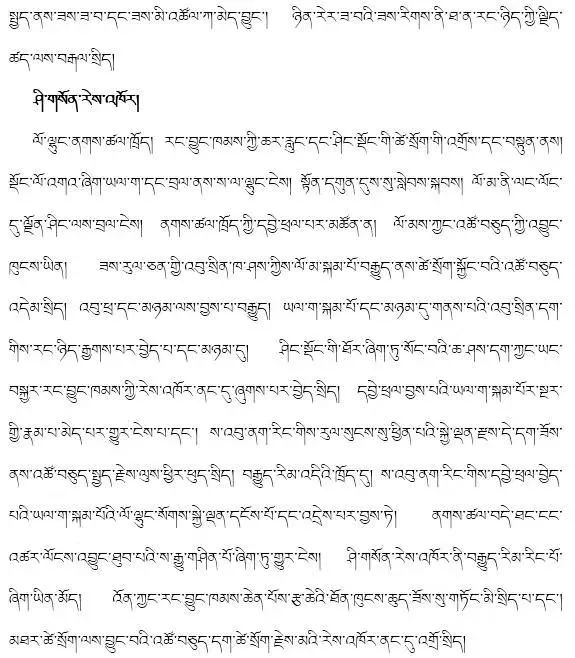 སྤྱད་ནས་ཟས་ཟ་བ་དང་ཟས་མི་འཚོལ་ཀ་མེད་བྱུང་། ཉིན་རེར་ཟ་བའི་ཟས་རིགས་ནི་ཐ་ན་རང་ཉིད་ཀྱི་ལྗིད་
ཚད་ལས་བརྒལ་སྲིད།
ཤི་གསོན་རེས་འཁོར།
ལོ་ལྷུང་ནགས་ཚལ་ཁྲོད། རང་བྱུང་ཁམས་ཀྱི་ཆར་རླུང་དང་ཤིང་སྡོང་གི་ཚེ་སྲོག་གི་འགྲོས་དང་བསྟུན་ནས།
སྡོང་ལོ་འགའ་ཞིག་ཡལ་ག་དང་བྲལ་ནས་ས་ལ་ལྷུང་ངེས། སྟོན་དགུན་དུས་སུ་སླེབས་སྐབས། ལོ་མ་ནི་ལང་ལོང་
དུ་ལྗོན་ཤིང་ལས་བྲལ་ངེས། ནགས་ཚལ་ཁྲོད་ཀྱི་དབྱེ་ཕྲལ་པར་མཚོན་ན། ལོ་མས་ཀྱང་འཚོ་བཅུད་ཀྱི་འབྱུང་
ཁུངས་ཡིན། ཟས་རུལ་ཅན་གྱི་འབུ་སྲིན་ཁ་ཤས་ཀྱིས་ལོ་མ་སྐམ་པོ་བརྒྱུད་ནས་ཚེ་སྲོག་སྐྱོང་བའི་འཚོ་བཅུད་
འདེམ་སྲིད། འབུ་ཕྲ་དང་མཉམ་ལས་བྱས་པ་བརྒྱུད། ཡལ་ག་སྐམ་པོ་དང་མཉམ་དུ་གནས་པའི་འབུ་སྲིན་དག་
གིས་རང་ཉིད་རྒྱགས་པར་བྱེད་པ་དང་མཉམ་དུ། ཤིང་སྡོང་གི་ཐོར་ཞིག་ཏུ་སོང་བའི་ཆ་ཤས་དག་ཀྱང་ཡང་
བསྐྱར་རང་བྱུང་ཁམས་ཀྱི་རེས་འཁོར་ནང་དུ་ཞུགས་པར་བྱེད་སྲིད། དབྱེ་ཕྲལ་བྱས་པའི་ཡལ་ག་སྐམ་པོར་སྔར་
གྱི་རྣམ་པ་མེད་པར་གྱུར་ངེས་པ་དང་། ས་འབུ་ནག་རིང་གིས་རུལ་སུངས་སུ་ཕྱིན་པའི་སྐྱེ་ལྡན་རྫས་དེ་དག་ཟོས་
ནས་འཚོ་བཅུད་སྤྱད་རྗེས་ལུས་ཕྱིར་ཕུད་སྲིད། བརྒྱུད་རིམ་འདིའི་ཁྲོད་དུ། ས་འབུ་ནག་རིང་གིས་དབྱེ་ཕྲལ་བྱེད་
པའི་ཡལ་ག་སྐམ་པོའི་ལོ་ལྷུང་སོགས་སྐྱེ་ལྡན་དངོས་པོ་དང་འདྲེས་པར་བྱས་ཏེ། ནགས་ཚལ་བདེ་ཐང་ངང་
འཚར་ལོངས་འབྱུང་ཐུབ་པའི་ས་རྒྱུ་གཤིན་པོ་ཞིག་ཏུ་གྱུར་ངེས། ཤི་གསོན་རེས་འཁོར་ནི་བརྒྱུད་རིམ་རིང་པོ་
ཞིག་ཡིན་མོད། འོན་ཀྱང་རང་བྱུང་ཁམས་ཆེན་པོས་རྩ་ཆེའི་ཐོན་ཁུངས་ཆུད་ཟོས་སུ་གཏོང་མི་སྲིད་པ་དང་།
མཐར་ཚེ་སྲོག་ལས་བྱུང་བའི་འཚོ་བཅུད་དག་ཚེ་སྲོག་རྗེས་མའི་རེས་འཁོར་ནང་དུ་འགྲོ་སྲིད།